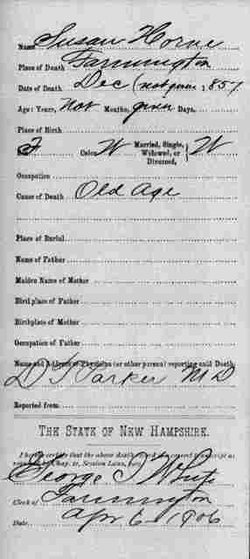 Name Susan Horne
Place of Death Farmington
Date of Death Dec (not given) 1857
Age: Years, Not Months, given Days,
Place of Birth
F Color W Married, Single, Widowed, or Divorced, W
Occupation
Cause of Death Old Age
Place of Burial
Name of Father
Maiden Name of Mother
Birthplace of Father
Birthplace of Mother
Occupation of Father
Name and Address of Physician (or other person) reporting said Death:
D S Parker MD
Reported from
THE STATE OF NEW HAMPSHIRE.
I hereby certify that the above death
George T White
Clerk of Farmington
Date Apr 6 1906